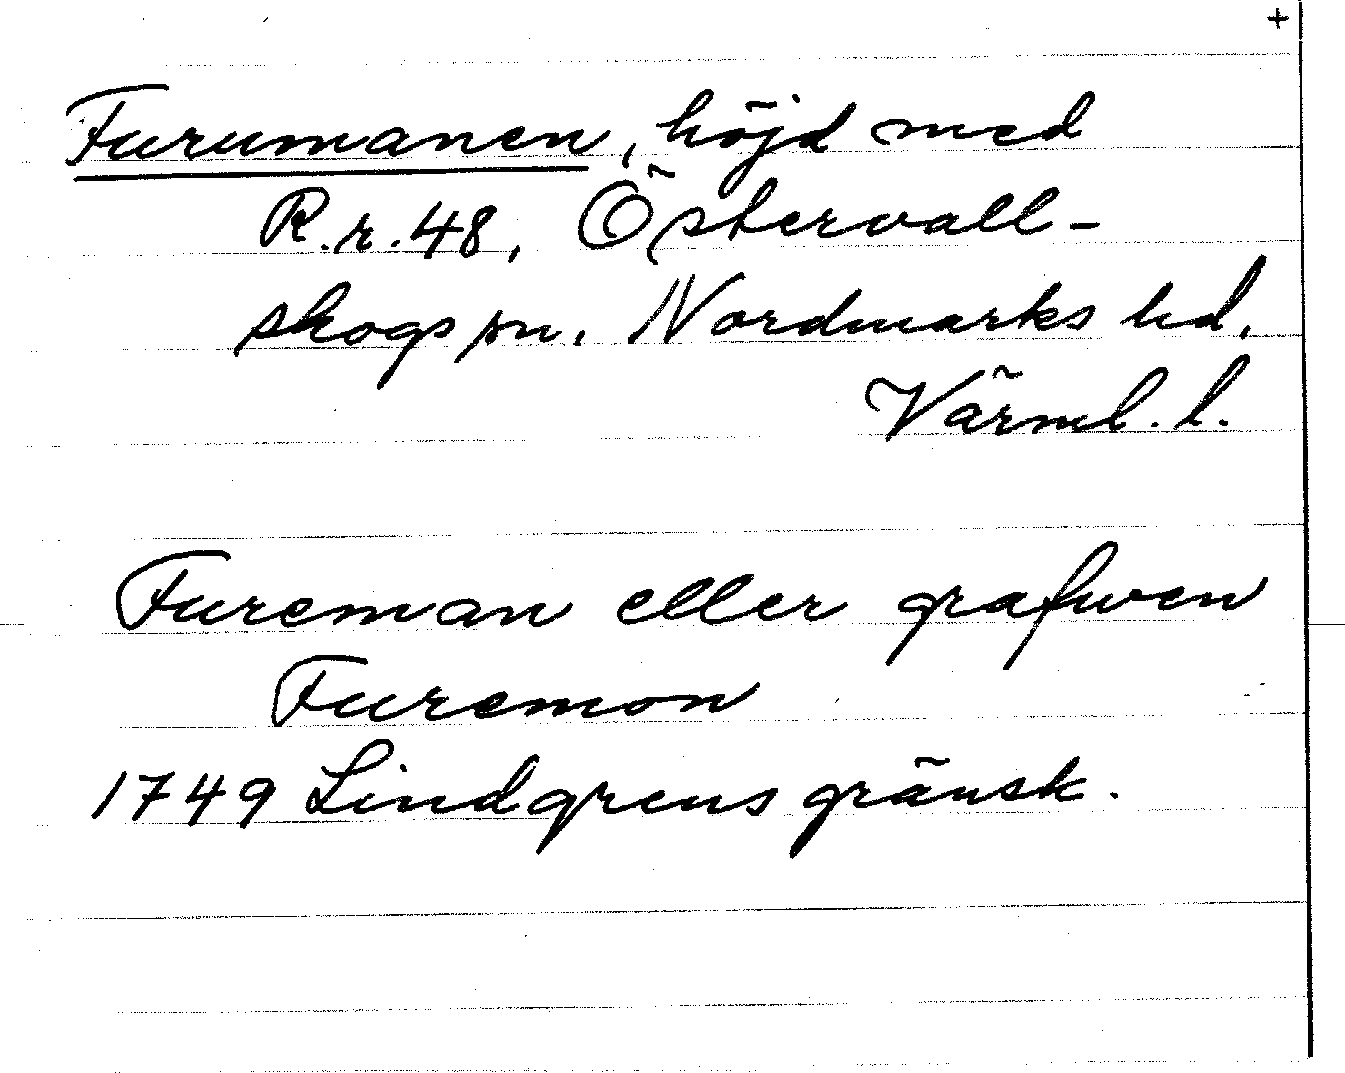 +
Furumanen, höjd med
R.r.48, Östervall-
skogs sn. Nordmarks hd,
Värml. l.
Fureman eller grafwen
Furemon
1749 Lindgrens gränsk.